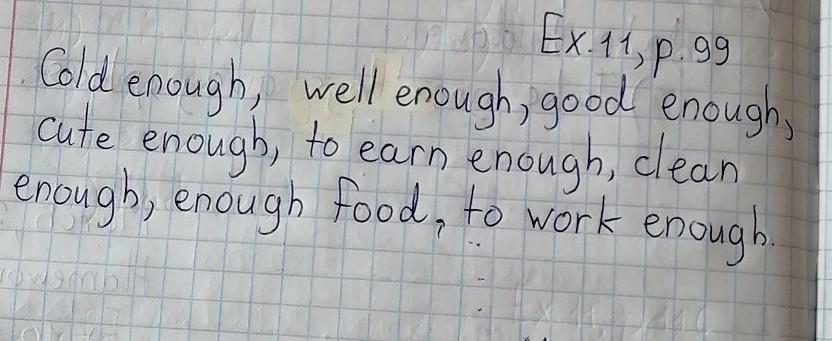 Ex. 11, p. 99
Cold enough, well enough, good enough,
cute enough, to earn enough, clean
enough, enough food, to work enough.